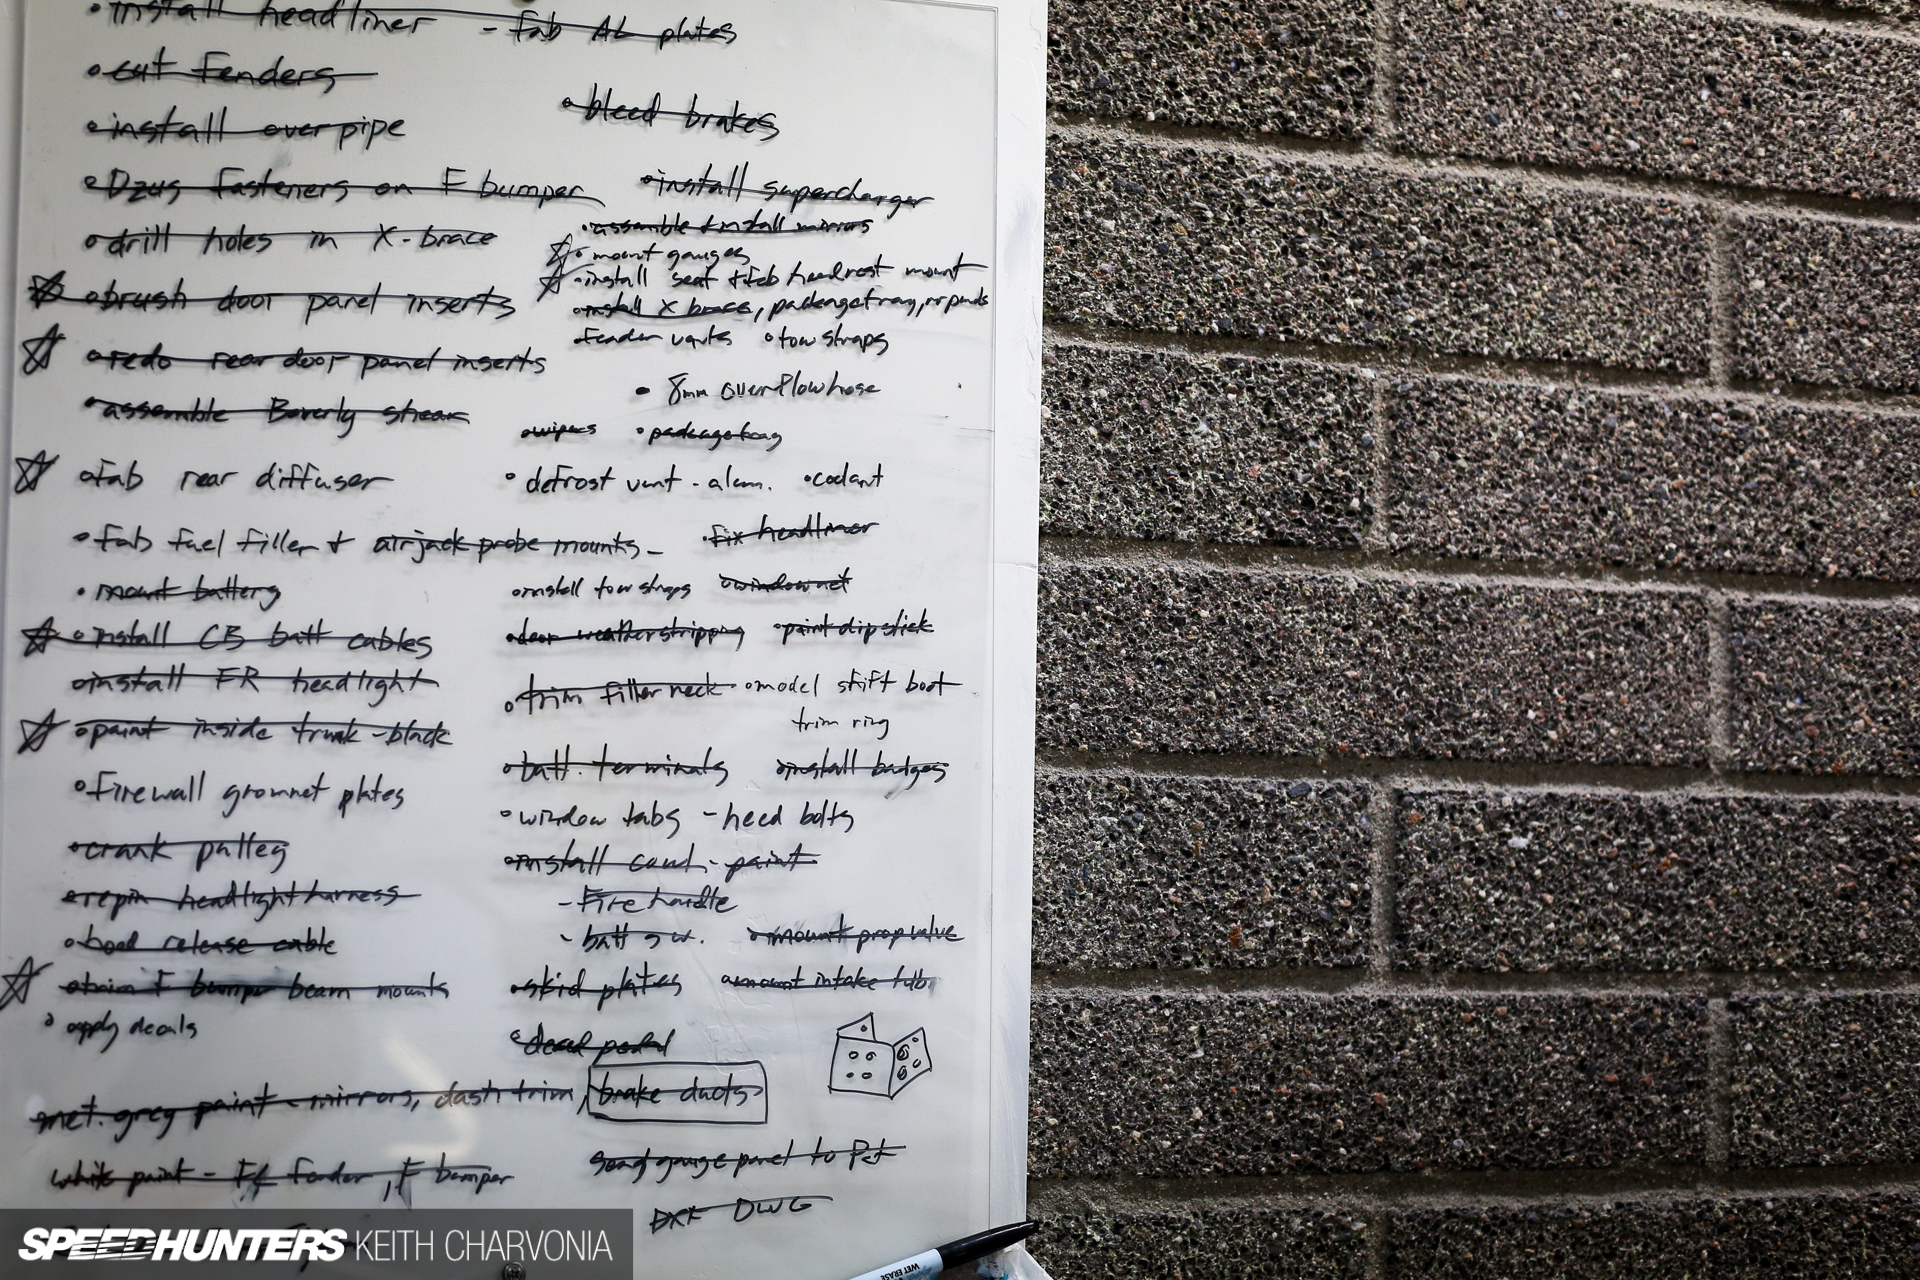 • install headliner - fab AL plates
• cut fenders
• bleed brakes
• install overpipe
• Dzus fasteners on F bumper
• install supercharger
• assemble + install mirrors
• drill holes in X-brace
• mount gauges
• install seat + fab headrest mount
• brush door panel inserts
• install X brace, packagetray, rr pnds
fender vents • tow straps
• redo rear door panel inserts
• 8mm overflow hose
• assemble Beverly shear
• wipers • packagetray
• fab rear diffuser
• defrost vent - alum. • coolant
• fab fuel filler + airjack probe mounts -
• fix headliner
• mount battery
• install tow straps • window net
• install CB batt cables
• door weatherstripping • paint dipstick
• install FR headlight
• trim filler neck • model shift boot
trim ring
• paint inside trunk - black
• batt. terminals • install badges
• Firewall grommet plates
• window tabs - need bolts
• crank pulley
• install cowl - paint
• repin headlight harness
- Fire handle
• hood release cable
- batt sw. • mount prop valve
• trim F bumper beam mounts
• skid plates • mount intake tub.
• apply decals
• dead pedal
met. grey paint - mirrors, dash trim, brake ducts
white paint - FL fender, F bumper
send gauge panel to Pct
DXF DWG
SPEEDHUNTERS KEITH CHARVONIA
WET ERASE